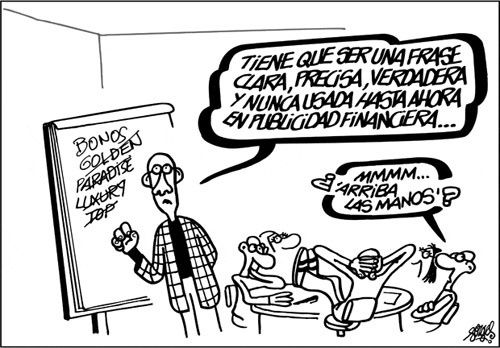 TIENE QUE SER UNA FRASE
CLARA, PRECISA, VERDADERA
Y NUNCA USADA HASTA AHORA
EN PUBLICIDAD FINANCIERA...
BONOS
GOLDEN
PARADISE
LUXURY
TOP
¿MMMM...
'ARRIBA
LAS MANOS'?